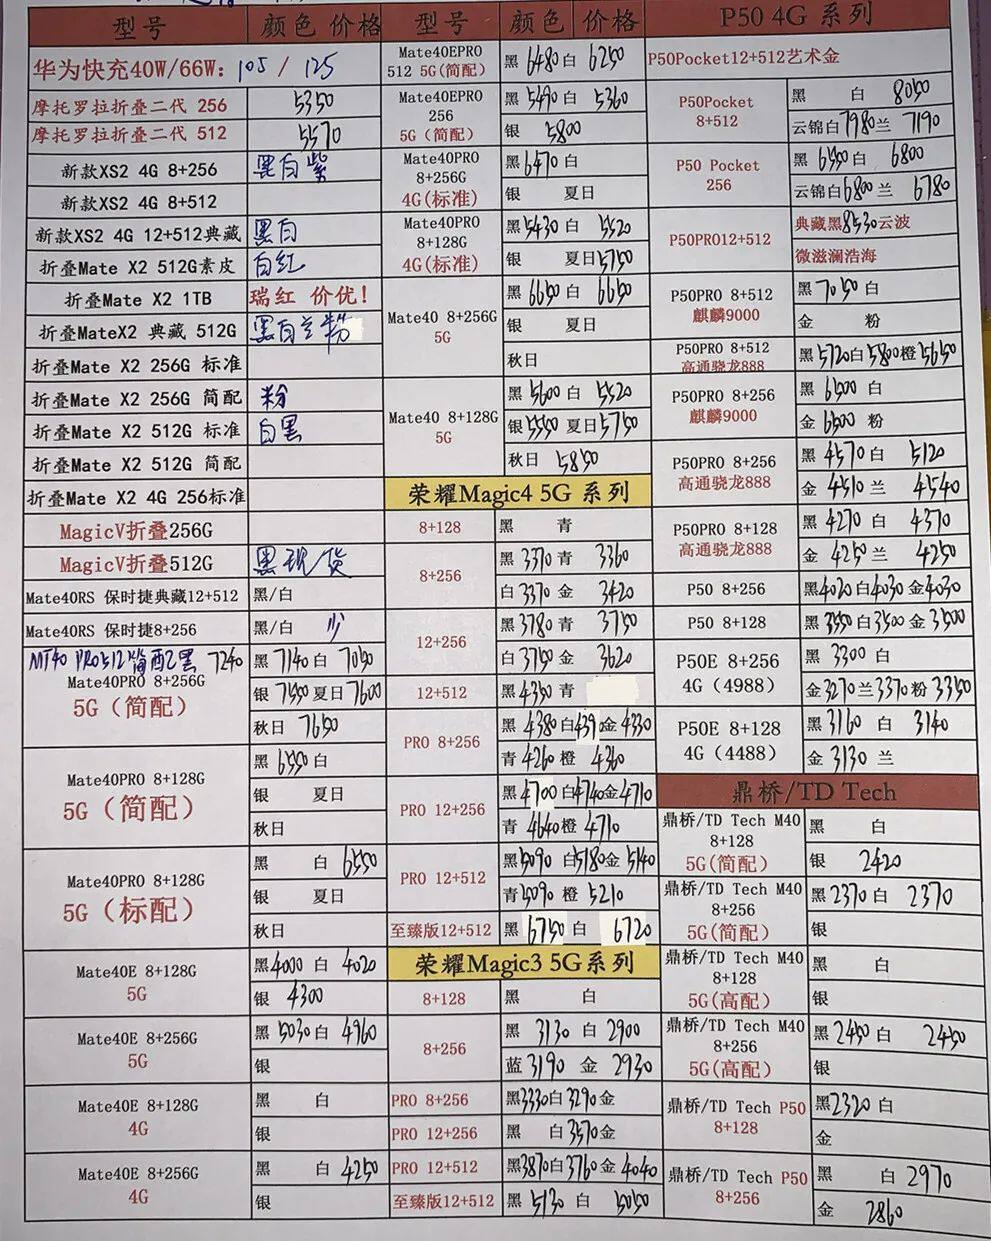 型号 颜色 价格
华为快充40W/66W: 105 / 125
摩托罗拉折叠二代 256 5350
摩托罗拉折叠二代 512 5570
新款XS2 4G 8+256 黑白紫
新款XS2 4G 8+512
新款XS2 4G 12+512典藏 黑白
折叠Mate X2 512G素皮 白红
折叠Mate X2 1TB 瑞红 价优!
折叠MateX2 典藏 512G 黑白兰粉
折叠Mate X2 256G 标准
折叠Mate X2 256G 简配 粉
折叠Mate X2 512G 标准 白黑
折叠Mate X2 512G 简配
折叠Mate X2 4G 256标准
MagicV折叠256G
MagicV折叠512G 黑现货
Mate40RS 保时捷典藏12+512 黑/白
Mate40RS 保时捷8+256 黑/白 少
MT40 PRO512简配黑 7240
Mate40PRO 8+256G
5G(简配)
黑 7140 白 7050
银 7550 夏日 7600
秋日 7650
Mate40PRO 8+128G
5G(简配)
黑 6550 白
银 夏日
秋日
Mate40PRO 8+128G
5G(标配)
黑 白 6550
银 夏日
秋日
Mate40E 8+128G
5G
黑 4000 白 4020
银 4300
Mate40E 8+256G
5G
黑 5030 白 4960
银
Mate40E 8+128G
4G
黑 白
银
Mate40E 8+256G
4G
黑 白 4250
银
型号 颜色 价格
Mate40EPRO
512 5G(简配)
黑 6480 白 6250
Mate40EPRO
256
5G(简配)
黑 5490 白 5360
银 5800
Mate40PRO
8+256G
4G(标准)
黑 6470 白
银 夏日
Mate40PRO
8+128G
4G(标准)
黑 5430 白 5520
银 夏日 5750
Mate40 8+256G
5G
黑 6650 白 6650
银 夏日
秋日
Mate40 8+128G
5G
黑 5600 白 5520
银 5550 夏日 5750
秋日 5850
荣耀Magic4 5G 系列
8+128 黑 青
8+256
黑 3370 青 3360
白 3370 金 3420
12+256
黑 3780 青 3750
白 3750 金 3620
12+512 黑 4350 青
PRO 8+256
黑 4380 白 4390 金 4330
青 4260 橙 4360
PRO 12+256
黑 4700 白 4740 金 4710
青 4640 橙 4710
PRO 12+512
黑 5090 白 5180 金 5140
青 5090 橙 5210
至臻版12+512 黑 6750 白 6720
荣耀Magic3 5G系列
8+128 黑 白
8+256
黑 3130 白 2900
蓝 3190 金 2930
PRO 8+256 黑 3330 白 3290 金
PRO 12+256 黑 白 3570 金
PRO 12+512 黑 3870 白 3760 金 4040
至臻版12+512 黑 5130 白 5050
P50 4G 系列
P50Pocket12+512艺术金
P50Pocket
8+512
黑 白 8050
云锦白 7980 兰 7190
P50 Pocket
256
黑 6550 白 6800
云锦白 6800 兰 6780
P50PRO12+512
典藏黑 8530 云波
微滋澜浩海
P50PRO 8+512
麒麟9000
黑 7050 白
金 粉
P50PRO 8+512
高通骁龙888
黑 5720 白 5800 橙 5650
P50PRO 8+256
麒麟9000
黑 6500 白
金 6500 粉
P50PRO 8+256
高通骁龙888
黑 4570 白 5120
金 4510 兰 4540
P50PRO 8+128
高通骁龙888
黑 4270 白 4370
金 4250 兰 4250
P50 8+256 黑 4020 白 4030 金 4030
P50 8+128 黑 3550 白 3500 金 3500
P50E 8+256
4G (4988)
黑 3300 白
金 3270 兰 3370 粉 3350
P50E 8+128
4G (4488)
黑 3160 白 3140
金 3130 兰
鼎桥/TD Tech
鼎桥/TD Tech M40
8+128
5G(简配)
黑 白
银 2420
鼎桥/TD Tech M40
8+256
5G(简配)
黑 2370 白 2370
银
鼎桥/TD Tech M40
8+128
5G(高配)
黑 白
银
鼎桥/TD Tech M40
8+256
5G(高配)
黑 2450 白 2450
银
鼎桥/TD Tech P50
8+128
黑 2320 白
金
鼎桥/TD Tech P50
8+256
黑 白 2970
金 2860